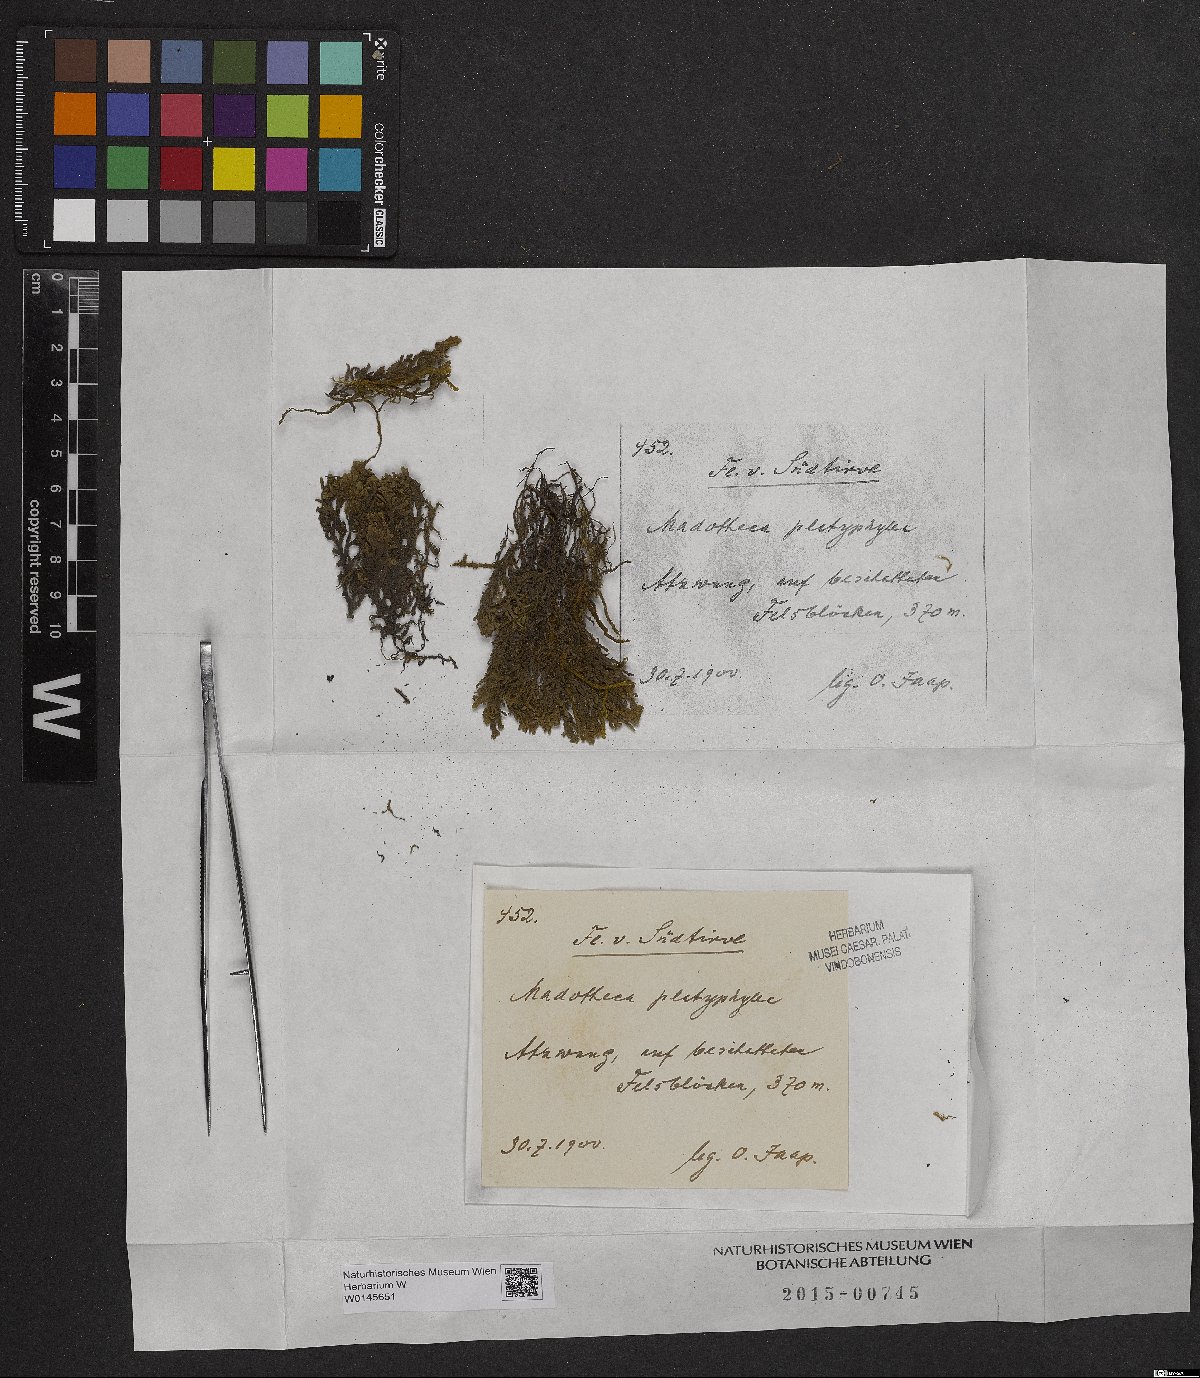 x-rite
colorchecker CLASSIC
cm
0
1
2
3
4
5
6
7
8
9
10
copyright reserved
W
452.
Fl. v. Südtirol
Madotheca platyphylla
Atzwang, auf beschatteten
Felsblöcken, 370 m.
30.7.1900.
leg. O. Jaap.
452.
Fl. v. Südtirol
Madotheca platyphylla
Atzwang, auf beschatteten
Felsblöcken, 370 m.
30.7.1900.
leg. O. Jaap.
HERBARIUM
MUSEI CAESAR. PALAT.
VINDOBONENSIS
NATURHISTORISCHES MUSEUM WIEN
BOTANISCHE ABTEILUNG
2015-00745
Naturhistorisches Museum Wien
Herbarium W
W0145651